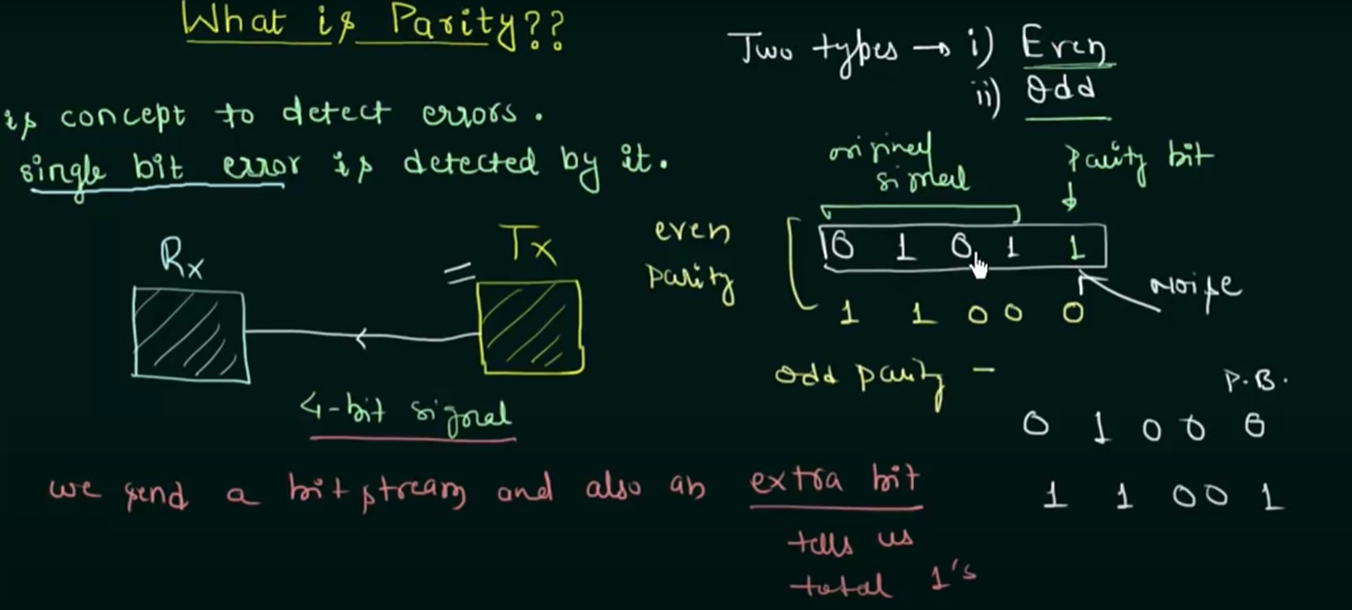 What is Parity??
is concept to detect errors.
single bit error is detected by it.
Rx
Tx
4-bit signal
we send a bit stream and also an extra bit
tells us
total 1's
Two types → i) Even
ii) Odd
original
signal
Parity bit
even
parity
0 1 0 1 1
1 1 0 0 0
Noise
odd parity –
P.B.
0 1 0 0 0
1 1 0 0 1